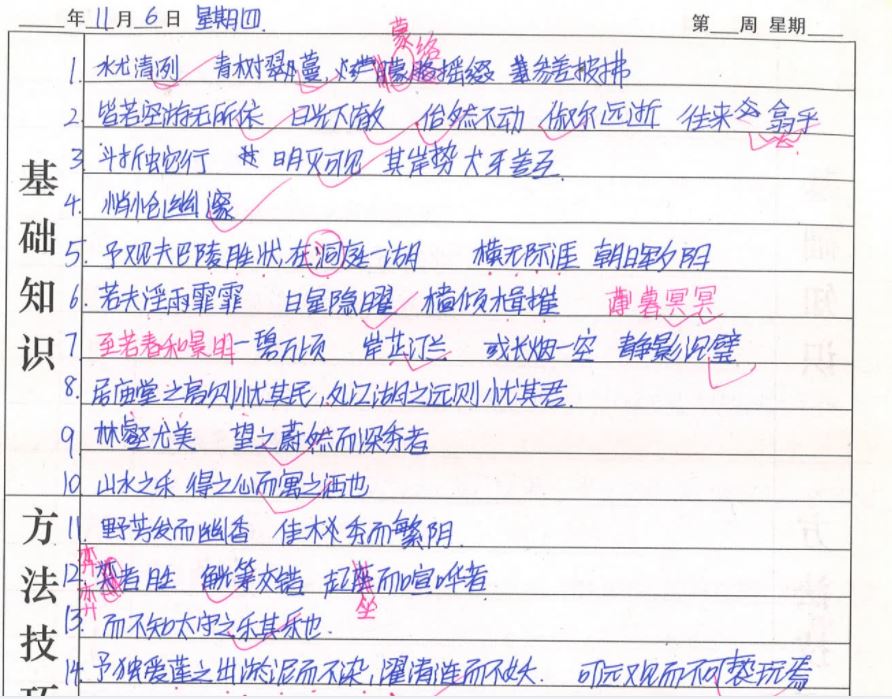 年 11 月 6 日 星期四 第 周 星期
蒙络
1. 水尤清冽 青树翠蔓 摇缀 参差披拂
2. 皆若空游无所依 日光下澈 佁然不动 俶尔远逝 往来 翕乎
3. 斗折蛇行 明灭可见 其岸势犬牙差互.
4. 悄怆幽邃
5. 予观夫巴陵胜状,在洞庭一湖 横无际涯 朝晖夕阴
6. 若夫淫雨霏霏 日星隐曜 樯倾楫摧 薄暮冥冥
7. 至若春和景明 一碧万顷 岸芷汀兰 或长烟一空 静影沉璧
8. 居庙堂之高则忧其民,处江湖之远则忧其君.
9. 林壑尤美 望之蔚然而深秀者
10. 山水之乐 得之心而寓之酒也
11. 野芳发而幽香 佳木秀而繁阴.
12. 弈者胜 觥筹交错 起座而喧哗者
弈 坐
13. 而不知太守之乐其乐也.
14. 予独爱莲之出淤泥而不染,濯清涟而不妖. 可远观而不可亵玩焉
基础知识
方法技巧